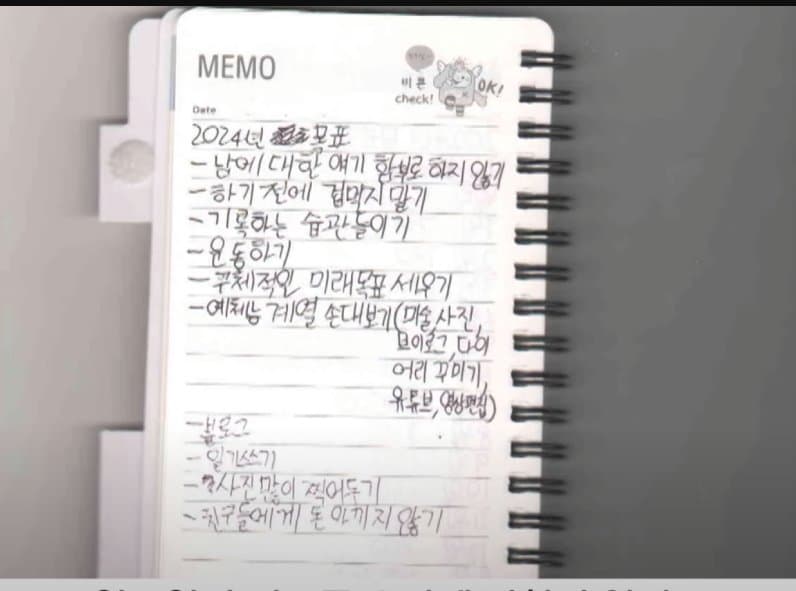 MEMO
비 큰
check!
OK!
Date
2024년 목표
- 남에 대한 얘기 함부로 하지 않기
- 하기 전에 겁먹지 말기
- 기록하는 습관들이기
- 운동하기
- 구체적인 미래목표 세우기
- 예체능 계열 손대보기(미술,사진,
브이로그, 다이
어리 꾸미기,
유튜브, 영상편집)
- 블로그
- 일기쓰기
- 사진 많이 찍어두기
- 친구들에게 돈 아끼지 않기